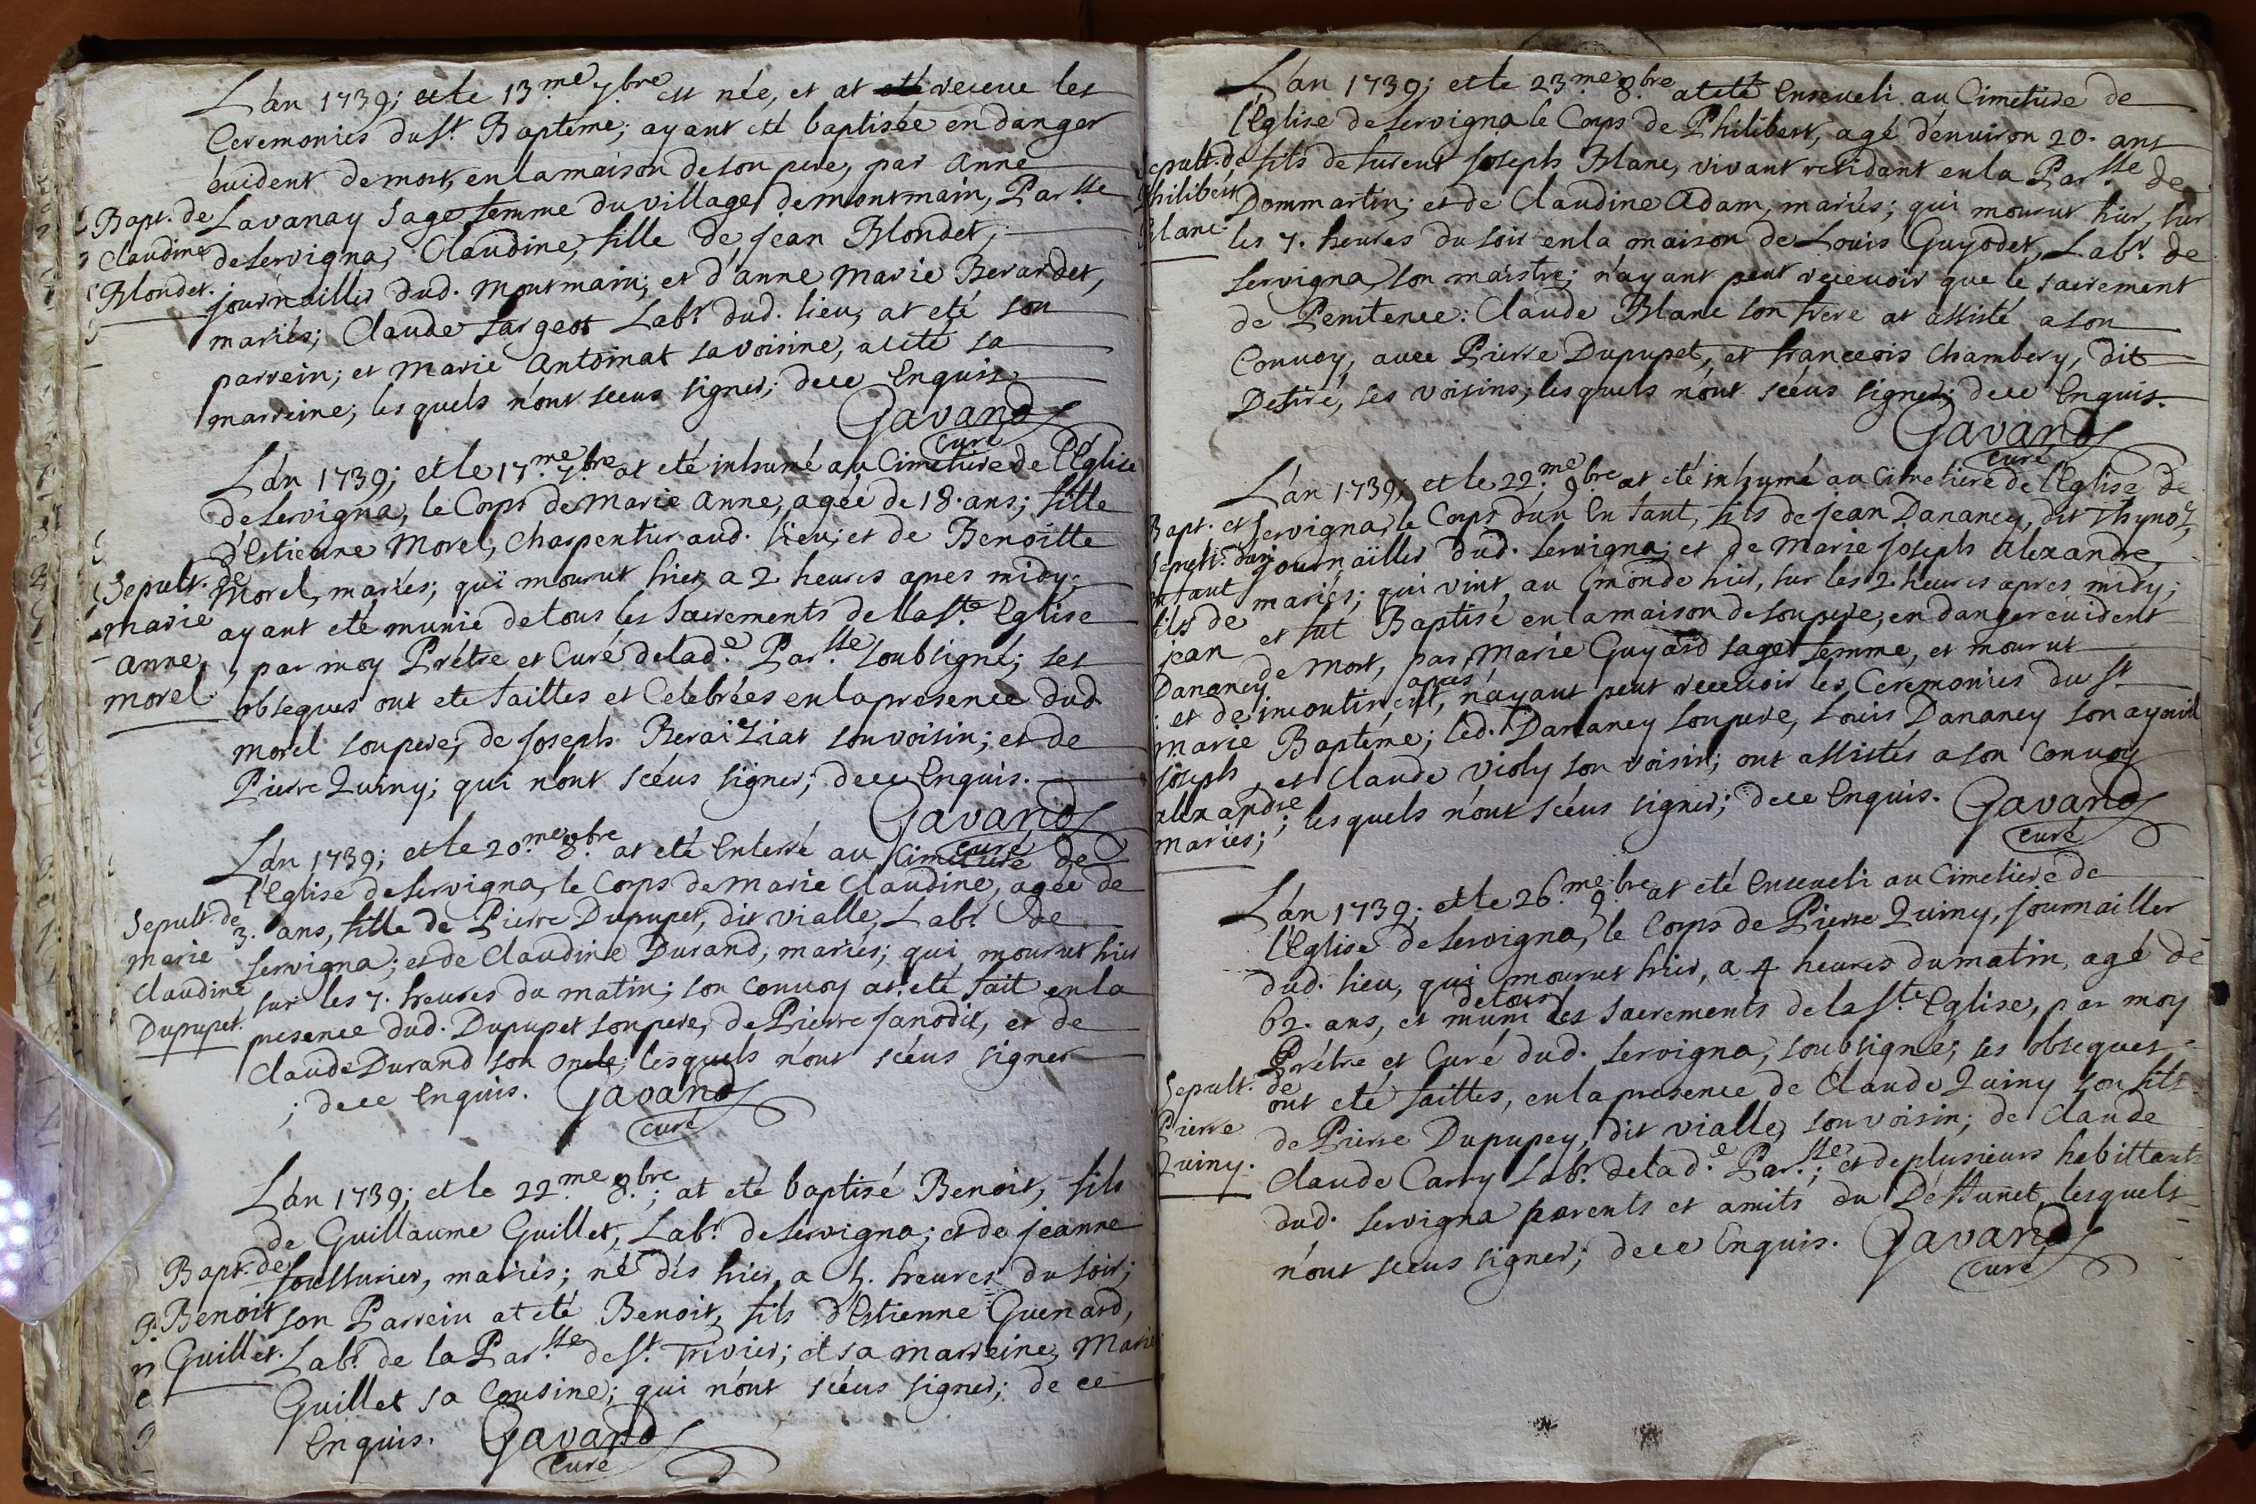 L'án 1739; et le 13.me 7.bre est née, et at eté receue les
Ceremonies du St. Baptême; ayant eté baptisée en danger
évident de mort, en la maison de son pere, par Anne
Bapt. de Lavanay Sage femme du village de montmain, Par.sse
Claudine de Servigna, Claudine, fille de jean Blondet,
Blondet. journaillier dud. Montmain; et d'anne Marie Berardet,
mariés; Claude fargeot Labr. dud. lieu, at eté son
parrein; et marie antoinat sa voisine, at eté sa
marreine; lesquels n'ont sceus signer; de ce Enquis.
Gavand
curé
L'án 1739; et le 17.me 7.bre at eté inhumé au Cimetiére de l'Eglise
de Servigna, le Corps de Marie anne, agée de 18. ans; fille
d'Estienne Morel, Charpentier aud. lieu; et de Benoitte
Sepult. de Morel, mariés; qui mourut hier, a 2 heures apres midy;
marie ayant eté munie de tous les Sacrements de la Ste. Eglise
anne, par moy Prétre et Curé de lad.e Par.sse soubsigné; ses
morel obseques ont eté faittes et Celebrées en la presence dud.
morel son pere, de joseph Beraiziat son voisin; et de
Pierre Quiny; qui n'ont scéus signer; de ce Enquis.
Gavand
curé
L'án 1739; et le 20.me 8.bre at eté Enterré au Cimetiére de
l'Eglise de Servigna, le Corps de marie Claudine, agée de
Sepult. de 3. ans, fille de Pierre Dupupet, dit vialle, Labr. de
marie Servigna; et de Claudine Durand, mariés; qui mourut hier
claudine sur les 7. heures du matin; son Convoy at eté fait en la
Dupupet. presence dud. Dupupet son pere, de Pierre janodit, et de
Claude Durand son oncle; lesquels n'ont scéus signer
; de ce Enquis. Gavand
curé
L'án 1739; et le 22.me 8.bre; at eté baptisé Benoit, fils
de Guillaume Guillet, Labr. de Servigna; et de jeanne
Bapt. de soussurier, mariés; né dés hier, a 5. heures du soir;
Benoit son Parrein at eté Benoit, fils d'Estienne Guenard,
Guillet. Labr. de la Par.sse de St. Trivier; et sa marreine, Marie
Guillet sa Cousine; qui n'ont scéus signer; de ce
Enquis. Gavand
curé
L'án 1739; et le 23.me 8.bre at eté Enseveli au Cimetiére de
l'Eglise de Servigna le Corps de Philibert, agé d'environ 20. ans
Sepult. de fils de furent joseph Blanc, vivant residant en la Par.sse de
Philibert Dommartin; et de Claudine Adam, mariés; qui mourut hier, sur
Blanc. les 7. heures du soir en la maison de Louis Guyodet, Labr. de
Servigna, son maistre; n'ayant peut recevoir que le sacrement
de Penitence: Claude Blanc son frere at assisté a son
Convoy, avec Pierre Dupupet, et françois Chambery, dit
Desiré, ses voisins; lesquels n'ont scéus signer; de ce Enquis.
Gavand
curé
L'án 1739; et le 22.me 9.bre at eté inhumé au Cimetiére de l'Eglise de
Bapt. et Servigna, le Corps d'un Enfant, fils de jean Dananey, dit Thynoz,
Sepult. d'un journaïller dud. Servigna; et de Marie joseph Alexandre,
enfant mariés; qui vint au monde hier, sur les 2. heures apres midy;
fils de et fut Baptisé en la maison de son pere, en danger évident
jean de mort, par Marie Guyard sage femme, et mourut
Dananey incontinent, apres n'ayant peut recevoir les Ceremonies du St.
et de Baptéme; led. Dananey son pere, Louis Dananey son ayeul
marie et Claude Violy son voisin; ont assistés a son Convoy
joseph ; lesquels n'ont scéus signer; de ce Enquis. Gavand
alexandre curé
mariés;
L'án 1739; et le 26.me 9.bre at eté Enseveli au Cimetiére de
l'Eglise de Servigna, le Corps de Pierre Quiny, journailler
dud. lieu, qui mourut hier, a 4 heures du matin, agé de
62. ans, et muni de tous les Sacrements de la Ste. Eglise, par moy
Prétre et Curé dud. Servigna, soubsigné; ses obseques
Sepult. de ont eté faittes, en la presence de Claude Quiny son fils
Pierre de Pierre Dupupey, dit vialle, son voisin; de Claude
Quiny. Claude Carry Labr. de lad.e Par.sse; et de plusieurs habittants
dud. Servigna parents et amits du Deffunct, lesquels
n'ont sceus signer; de ce Enquis. Gavand
curé